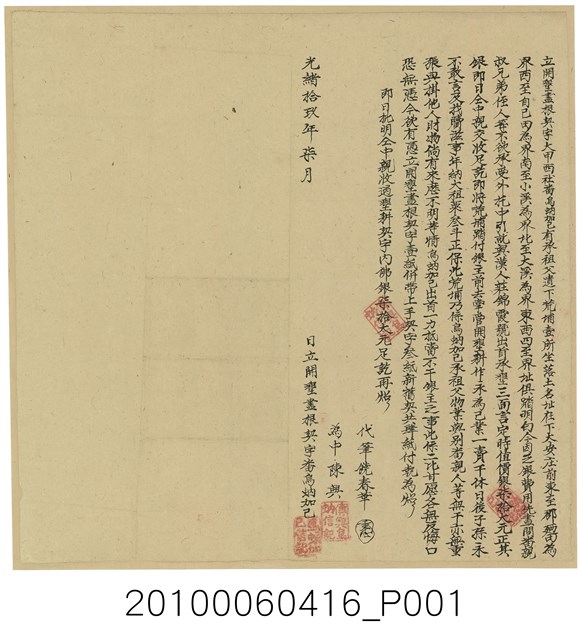 立開墾盡根契字大甲西社番烏蚋加己有承祖父遺下荒埔壹所坐落土名址在下大安庄前東至那田為
界西至自己田為界南至小溪為界北至大溪為界東西四至界址俱踏明白今因乏銀費用先盡問番親
叔兄弟侄人等不欲承受外托中引就與漢人莊錦霞號出首承墾三面言定時值價銀柒拾大元正其
銀即日仝中親交收足訖即將荒埔踏付銀主前去掌管開墾耕作永為己業一賣千休日後子孫永
不敢言及找贖滋事年納大租粟叁斗正保此荒埔乃係烏蚋加己承祖父物業與別番親人等無干亦無重
張典掛他人財物倘有來歷不明等情烏蚋加己出首一力抵當不干銀主之事此係二比甘愿各無反悔口
恐無憑今欲有憑立開墾盡根契字壹紙併帶上手契字叁紙新舊契共肆紙付執為炤
即日批明仝中親收過墾耕契字內佛銀柒拾大元足訖再炤
代筆饒春華
為中陳興
光緒拾玖年柒月 日立開墾盡根契字番烏蚋加己
20100060416_P001